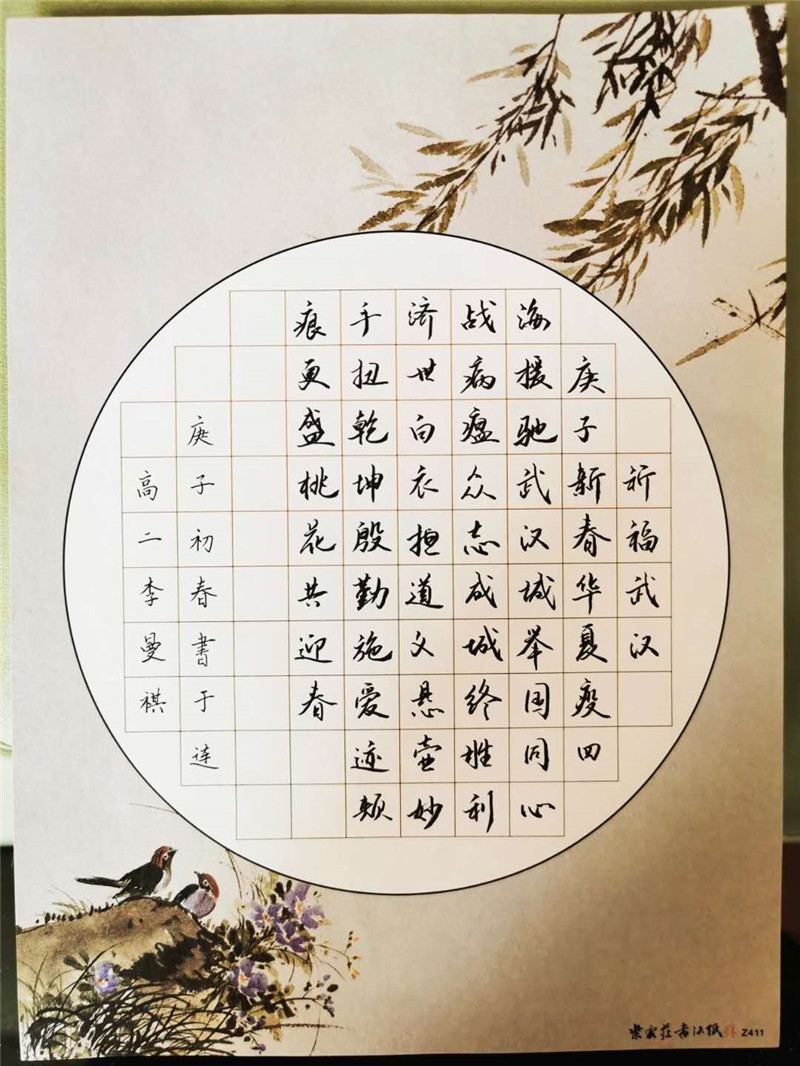 祈福武汉
庚子新春华夏疫四
海援驰武汉城举国同心
战病瘟众志成城终胜利
济世白衣担道义悬壶妙
手扭乾坤殷勤施爱迹频
痕更盛桃花共迎春
庚子初春书于连
高二李曼祺
紫云庄书法纸 Z411